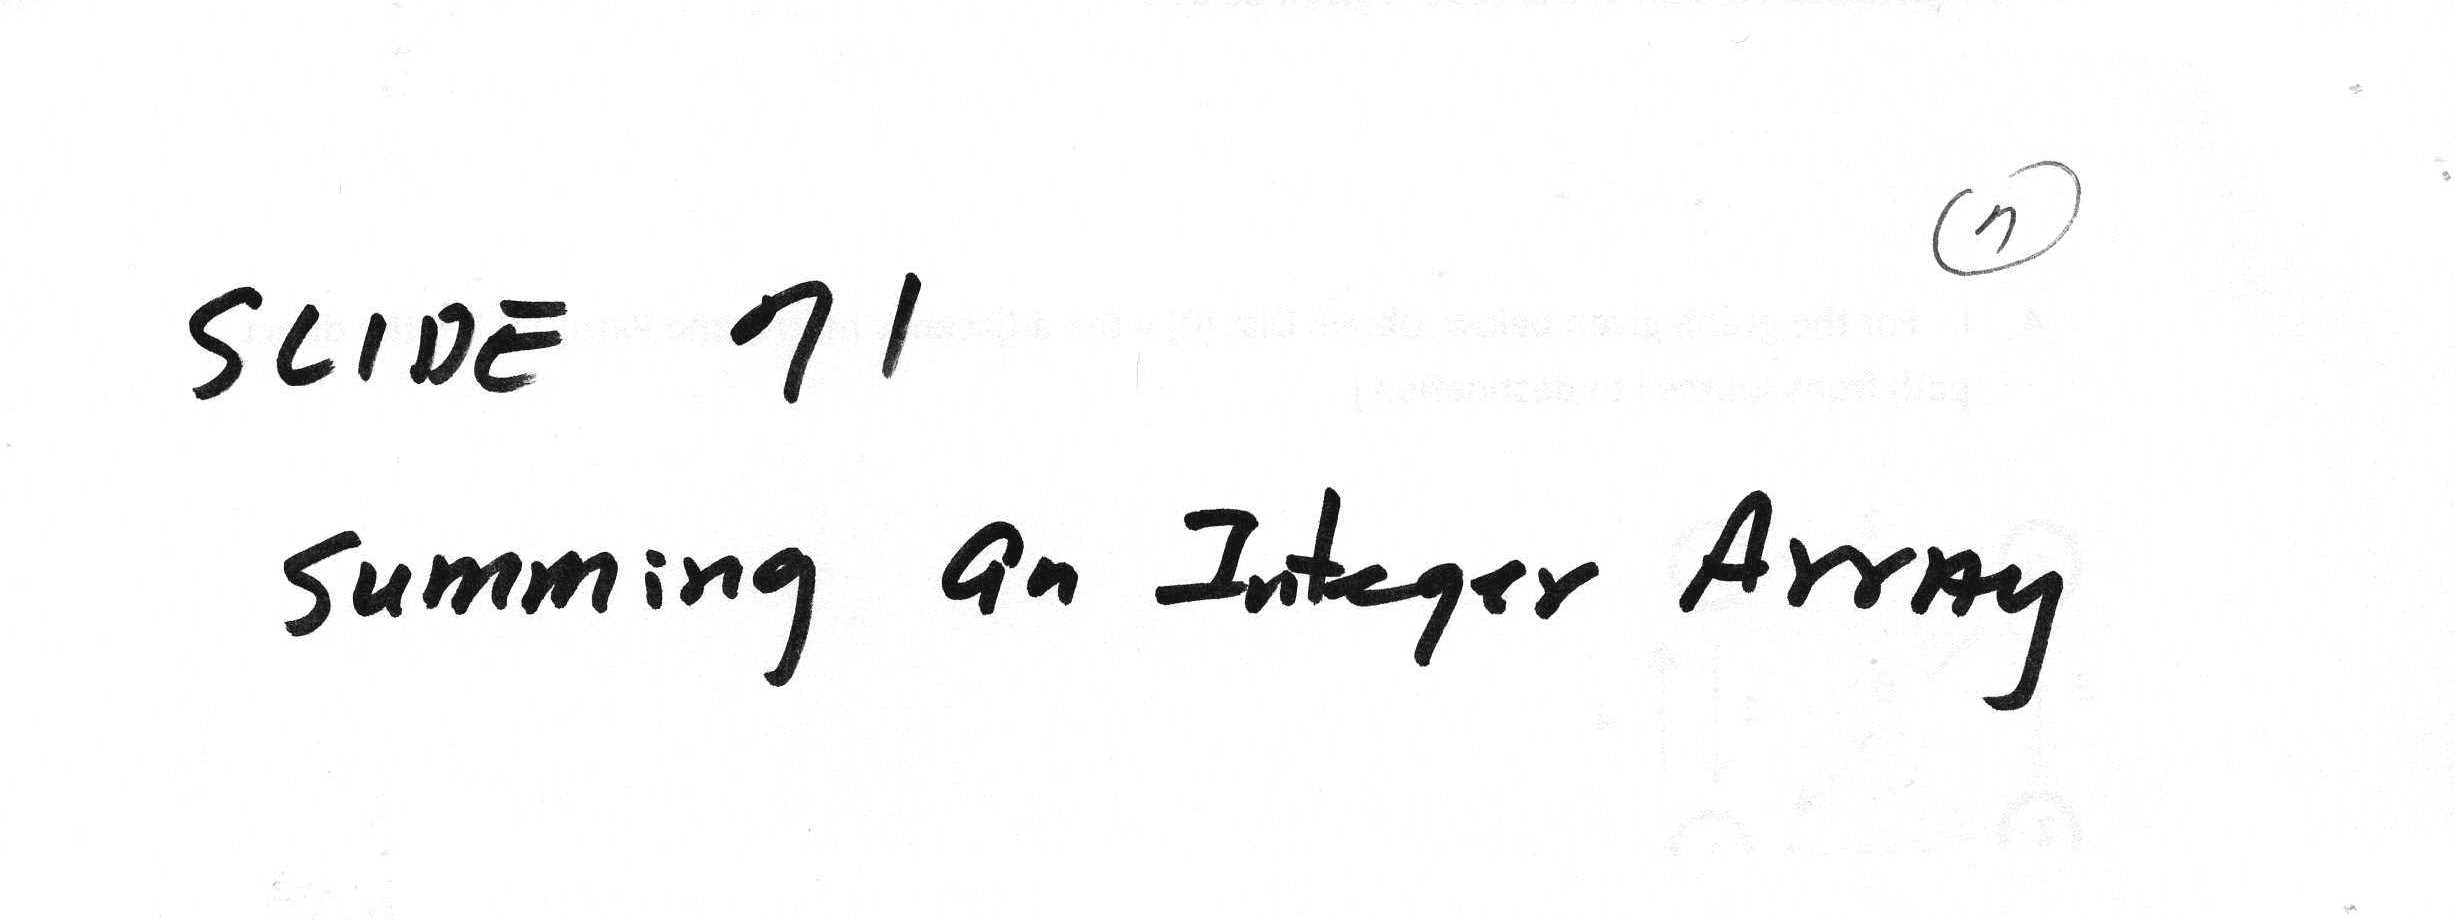 7
SLIDE 71
Summing an Integer Array